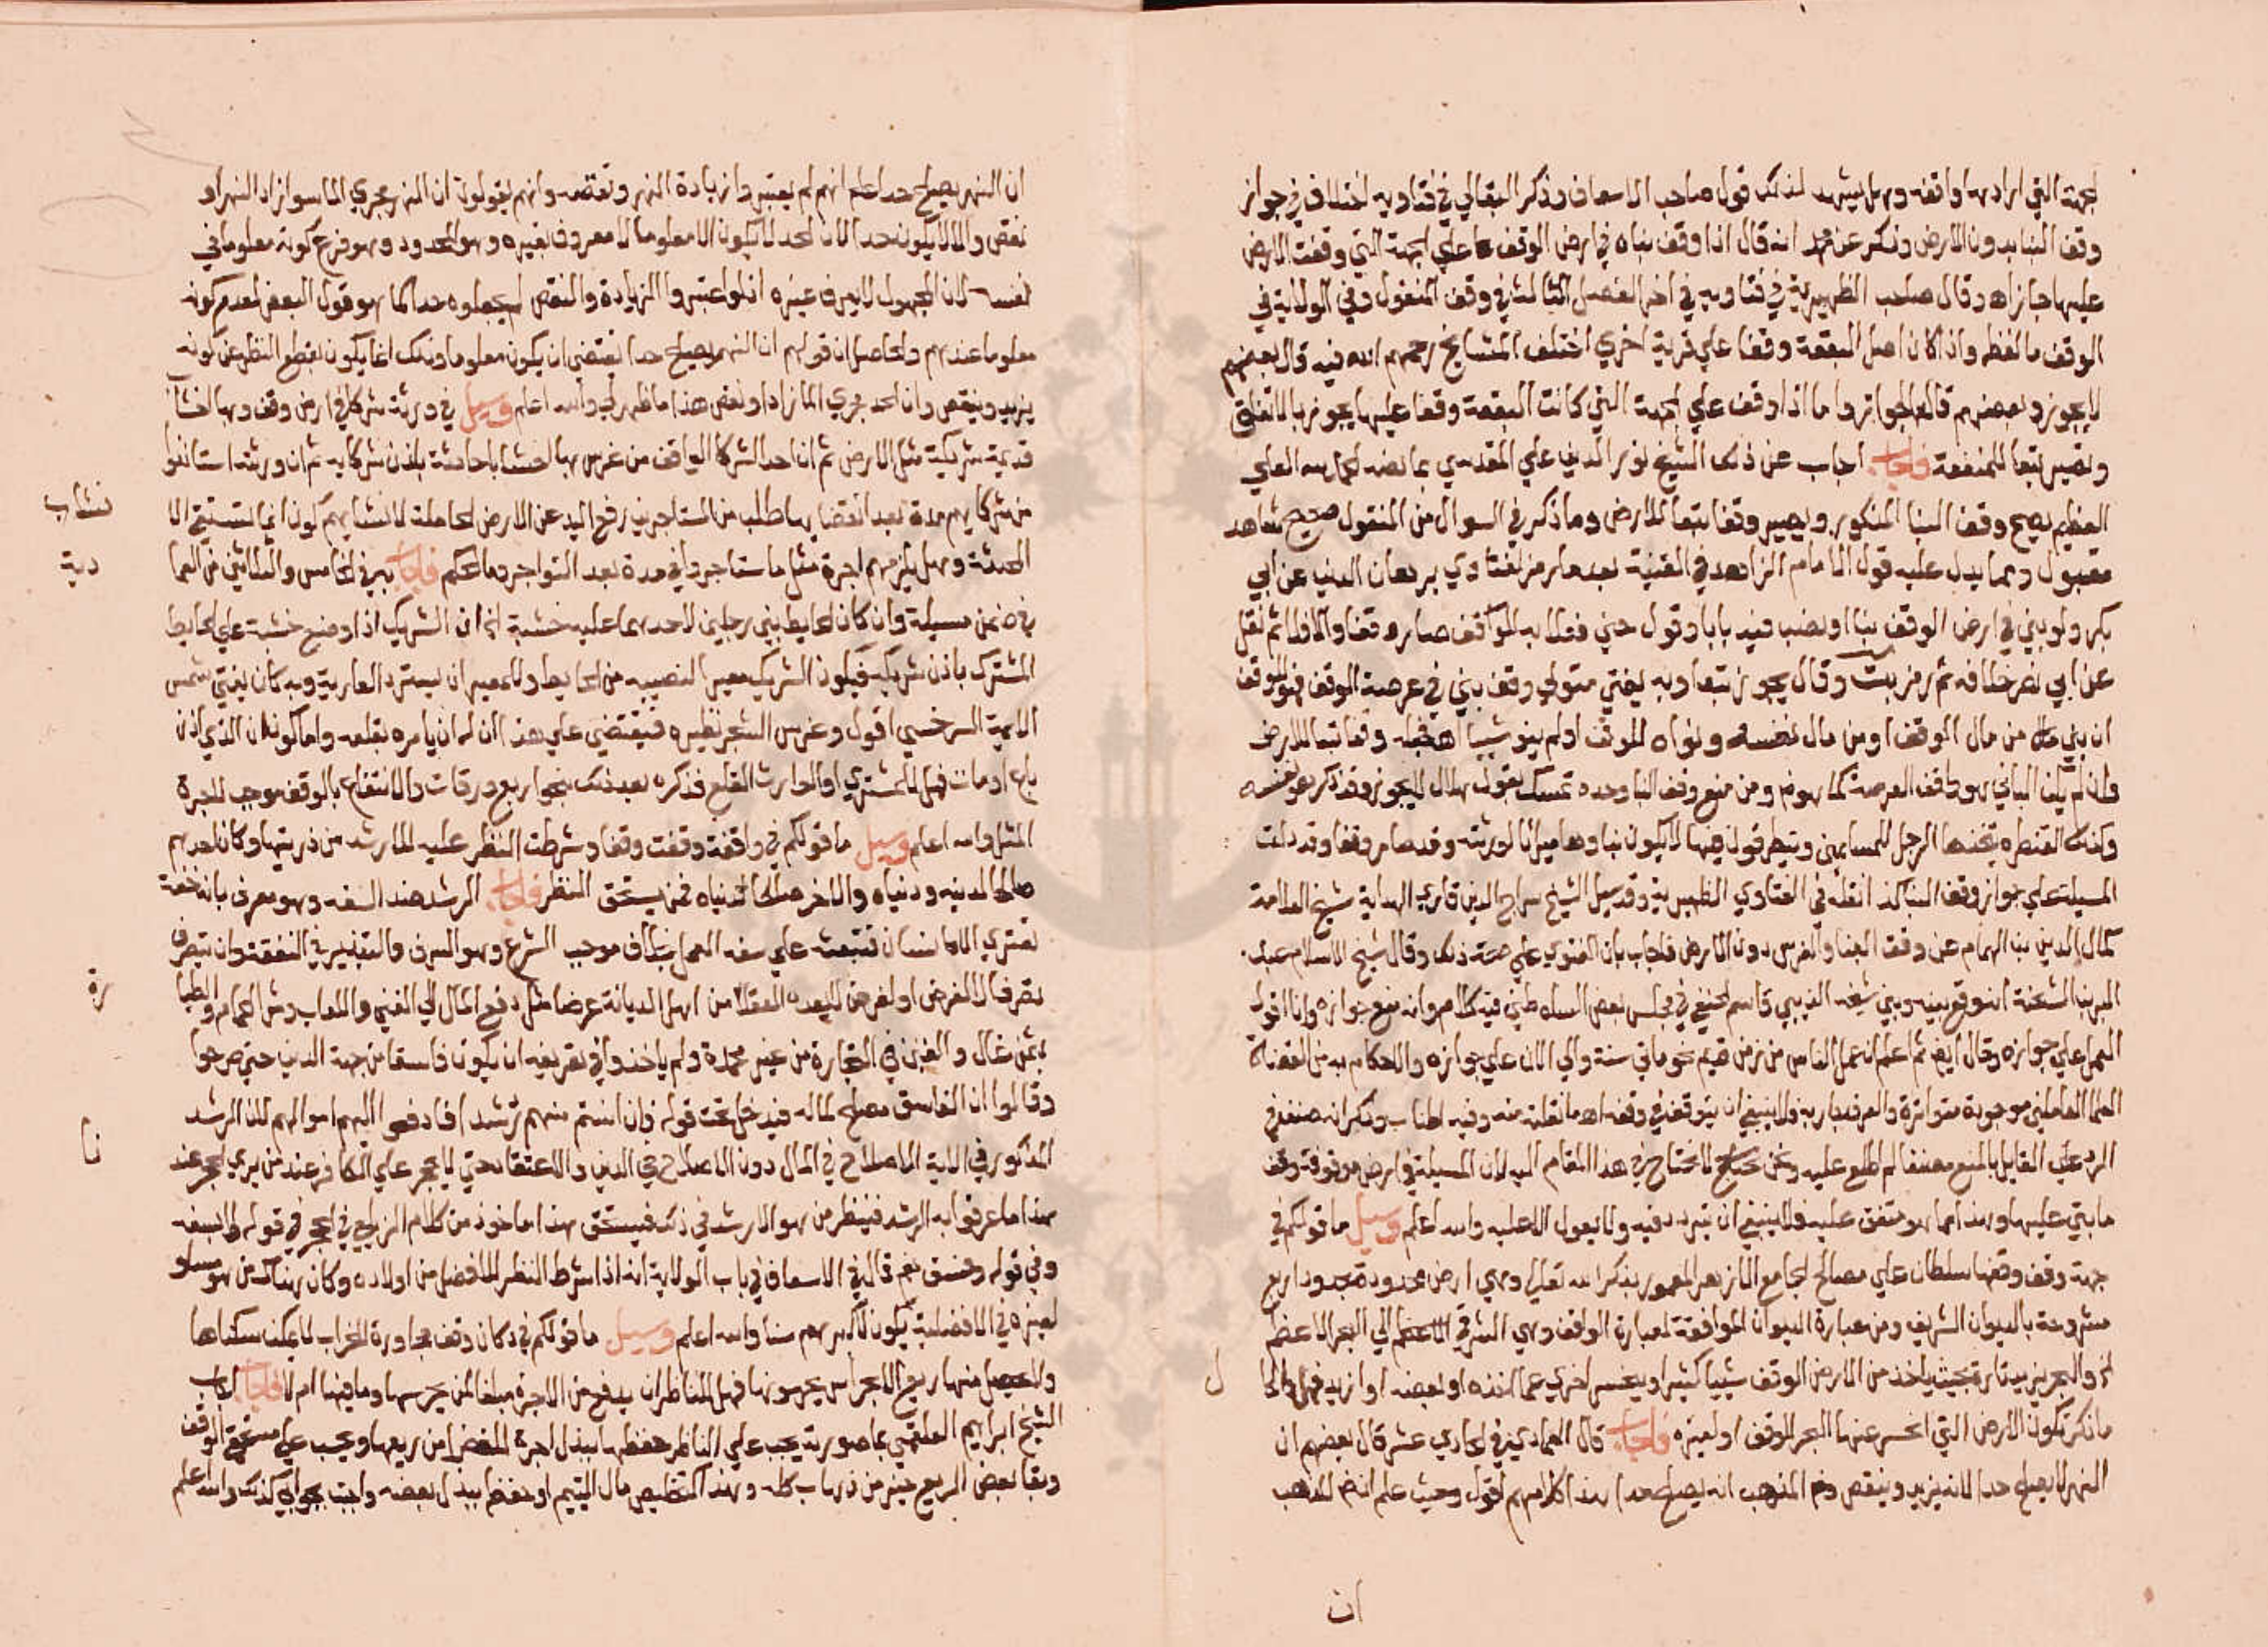 لجهة التي ارادها واقفه وهل يشهد لذلك قول صاحب الاسعاف وذكر البقالي في فتاويه اختلاف في جواز
وقف البنا بدون الارض وذكر عن محمد انه قال اذا وقف بناه في ارض الوقف علي الجهة التي وقفت الارض
عليها جاز اه وقال صاحب الظهيرية في فتاويه في اخر الفصل الثالث في وقف المنقول وفي الولاية في
الوقف ما لفظه واذا كان اصل البقعة وقفا علي قربة اخري اختلف المشايخ رحمهم الله فيه قال بعضهم
لا يجوز وبعضهم قال الجواز واما اذا وقف علي الجهة التي كانت البقعة وقفا عليها يجوز بالاتفاق
وتصير تبعا للمنفعة فاجاب اجاب عن ذلك الشيخ نور الدين علي المقدسي بما نصه الحمد لله العلي
العظيم يصح وقف البنا المذكور ويصير وقفا تبعا للارض وما ذكر في السوال من المنقول صحيح شاهد
مقبول ومما يدل عليه قول الامام الزاهد في القنية بعد ما رمز لفتاوي برهان الدين عن ابي
بكر ولو بني في ارض الوقف بنا او نصب فيه بابا وقول حتي فعلا به الموقف صار وقفا والا فلا ثم نقل
عن ابي نصر خلافه ثم رمز بت وقال يجوز تبعا وبه يفتي متولي وقف بني في عرصة الوقف فهو للوقف
ان بني من مال الوقف او من مال نفسه ونواه للوقف او لم ينو شيا وقفا تبعا للارض
وان لم يكن الباني هو واقف العرصة كما هو ومن منع وقف البنا وحده تمسك بقول هلال لا يجوز وقد ذكر هو نفسه
وكذلك القنطرة يتخذها الرجل للمسلمين ويتطرقون فيها لا يكون بناوها ميراثا لورثته وقد صار وقفا وقد دلت
المسيلة علي جواز وقف البنا كذا نقله في الفتاوي الظهيرية وقد سيل الشيخ سراج الدين قاري الهداية شيخ العلامة
كمال الدين بن الهمام عن وقف البنا والغرس دون الارض فاجاب بان الفتوي علي صحة ذلك وقال شيخ الاسلام عبد
البر بن الشحنة انه وقع بينه وبين شيخه الزيني قاسم الحنفي في مجلس بعض السلاطين فيه كلام وانه منع جوازه وانا اقول
العمل علي جوازه وقال ايض ثم اعلم ان عمل الناس من زمن قديم نحو مايتي سنة والي الان علي جوازه والاحكام به من القضاة
العلما العاملين موجودة متواترة والعرف جار به فلا ينبغي ان يتوقف في وقفه اه ما نقلته منه وفيه اطناب وذكر انه صنف في
الرد علي القايل بالمنع مصنفا لم اطلع عليه ونحن لا نحتاج في هذا المقام اليه لان المسيلة في ارض موقوفة وقف
ما بني عليها وهذا مما هو متفق عليه فلا ينبغي ان يتردد فيه ولا يعول الا عليه والله اعلم وسيل ما قولكم في
جهة وقف وقفها سلطان علي مصالح الجامع الازهر المعمور بذكر الله تعالي وهي ارض محدودة بحدود اربع
مشروحة بالديوان الشريف ومن عبارة الديوان الموافقة لعبارة الواقف وهي الشرقي الي البحر الاعظم
الخ والبحر يزيد تارة بحيث ياخذ من الارض الوقف شييا كثيرا وينحسر اخري عما اخذه او بعضه او ازيد فهل والحال
ما ذكر تكون الارض التي انحسر عنها البحر للوقف او لغيره فاجاب قال العمادي في الحادي عشر قال بعضهم ان
النهر لا يصلح حدا لانه يزيد وينقص وفي المذهب انه يصلح حدا هذا كلامهم اقول وحيث علم ان في المذهب
ان
ان النهر يصلح حدا علم انهم لم يعتبروا زيادة النهر ونقصه وانهم يقولون ان النهر مجري الما سوا زاد النهر او
نقص والا لا يكون حدا لان الحد لا يكون الا معلوما لا معروف بغيره وهو المحدود وهو فرع كونه معلوما في
نفسه لان المجهول لا يعرف غيره اذ لو اعتبروا الزيادة والنقص لم يجعلوه حدا كما هو قول البعض لعدم كونه
معلوما عندهم والحاصل ان قولهم ان النهر يصلح حدا يقتضي ان يكون معلوما وذلك انما يكون بقطع النظر عن كونه
يزيد وينقص وان الحد مجري الما زاد او نقص هذا ما ظهر لي والله اعلم وسيل في ورثة شركا في ارض وقف وبها انشاب
قديمة شركة مثل الارض ثم ان احد الشركا الواقف من غرس بها انشابا حادثة باذن شركايه ثم ان ورثته استاذنوا
من شركايهم مدة بعد انقضايها طلب من المستاجرين رفع اليد عن الارض الحاملة لانشابهم لكون انما يستبيح الا
المحدثة وهل يلزمهم اجرة مثل ما استاجروا في مدة بعد التواجر وما الحكم فاجاب في الخامس والثلاثين من العما
دية في ضمن مسيلة وان كان الحايط بين رجلين لاحدهما عليه خشبة الخ ان الشريك اذا وضع خشبة علي الحايط
المشترك باذن شريكه فيكون الشريك معيرا لنصيبه من الحايط وللمعير ان يسترد العارية وبه كان يفتي شمس
الايمة السرخسي اقول وغرس الشجر نظيره فيقتضي علي هذا ان له ان يامره بقلعه واما كون ان الذي اذن
باع او مات فهل للمشتري او الوارث القلع فذكره بعد ذلك بنحو اربع ورقات والانتفاع بالوقف موجب للاجرة
المثل والله اعلم وسيل ما قولكم في واقفة وقفت وقفا وشرطت النظر عليه للارشد من ذريتها وكان احدهم
صالحا لدينه ودنياه والاخر صالحا لدنياه فمن يستحق النظر فاجاب الرشد ضد السفه وهو معرف بانه خفة
تعتري الانسان فتبعثه علي سفه العمل بخلاف موجب الشرع وهو السرف والتبذير في النفقة وان يتصرف
تصرفا لا لغرض او لغرض لا يعده العقلا من اهل الديانة غرضا مثل دفع المال الي المغني واللعاب وشرا الحمام الطيا
رة بثمن غال والغبن في التجارة من غير محمدة ولم ياخذوا في تعريفه ان يكون فاسقا من جهة الدين حتي صرحوا
وقالوا ان الفاسق مصلح لماله فيدخل تحت قوله فان انستم منهم رشدا فادفعوا اليهم اموالهم لان الرشد
المذكور في الاية الاصلاح في المال دون الاصلاح في الدين والاعتقاد حتي لا يحجر علي الكافر عند من يري الحجر عند
نا هذا ما عرفوا به الرشد فينظر من هو الارشد في ذلك فيستحق هذا ماخوذ من كلام الزيلعي في الحجر في قوله والسفه
وفي قوله وفسق نعم قال في الاسعاف في باب الولاية انه اذا شرط النظر للافضل من اولاده وكان هناك من هو مساو
لغيره في الافضلية يكون لاكبرهم سنا والله اعلم وسيل ما قولكم في دكان وقف مجاورة للخراب لا يمكن سكناها
والتحصيل منها ريع الا بحراس يحرسونها فهل للناظر ان يدفع من الاجرة مبلغا لمن يحرسها وما فيها ام لا فاجاب اجاب
الشيخ ابراهيم العلقمي بما صورته يجب علي الناظر حفظها ببذل اجرة الخفر من ريعها ويجب علي مستحقي الوقف
وبقا بعض الريع خير من ذهاب كله وهذا كتخليص مال اليتيم او بعضه ببذل بعضه واجبت بجوابي كذلك والله اعلم